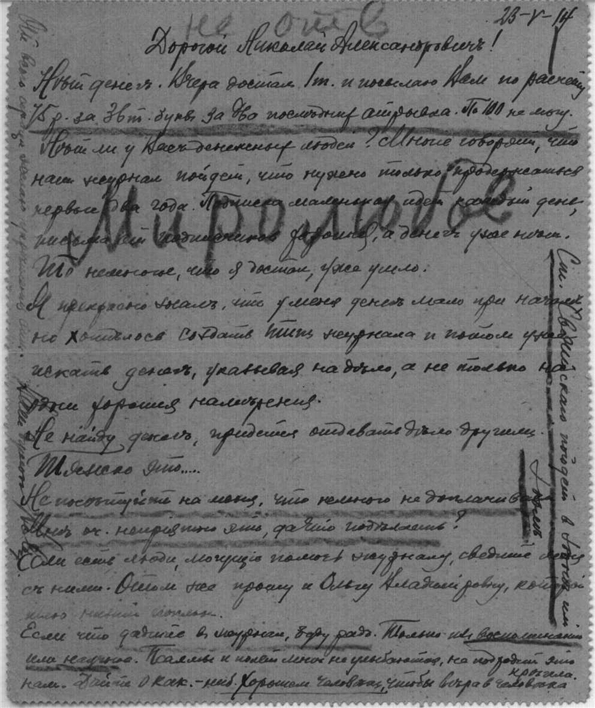 не отв
23-V-14
Дорогой Николай Александровичъ!
Нѣтъ денегъ. Вчера досталъ 1т. и посылаю Вамъ по расчету
75 р. за 3 вт. букв за два послѣднiе отрывка. По 100 не могу.
Нѣтъ ли у Васъ денежныхъ людей? Многiе говорятъ, что
нашъ журналъ пойдетъ, что нужно только продержаться
первые два года. Подписка маленькая идетъ каждый день,
письма отъ подписчиковъ хорошiя, а денегъ уже нѣтъ.
Миролюбов
То немногое, что я досталъ, ужъ ушло.
Я прекрасно зналъ, что у меня денегъ мало при началѣ
но хотѣлось создать типъ журнала и потомъ уже
искать денегъ, указывая на дѣло, а не только на
одни хорошiя намѣренiя.
Не найду денегъ, придется отдавать дѣло другимъ.
Тяжело это....
Не посѣтуйте на меня, что немного не доплачиваю
Мнѣ оч. непрiятно это, да что подѣлаешь?
Если есть люди, могущiе помочь журналу, сведите меня
съ ними. О томъ же прошу и Ольгу Владимiровну, которой
низкiй поклонъ.
Если что дадите въ журналъ, буду радъ. Только не воспоминанiя
или научно. не улыбаются, не подходитъ это
нам. Дайте о как.-ниб. хорошемъ человѣкѣ, чтобы вѣра въ человѣка
крѣпла.
Ст. пойдетъ в